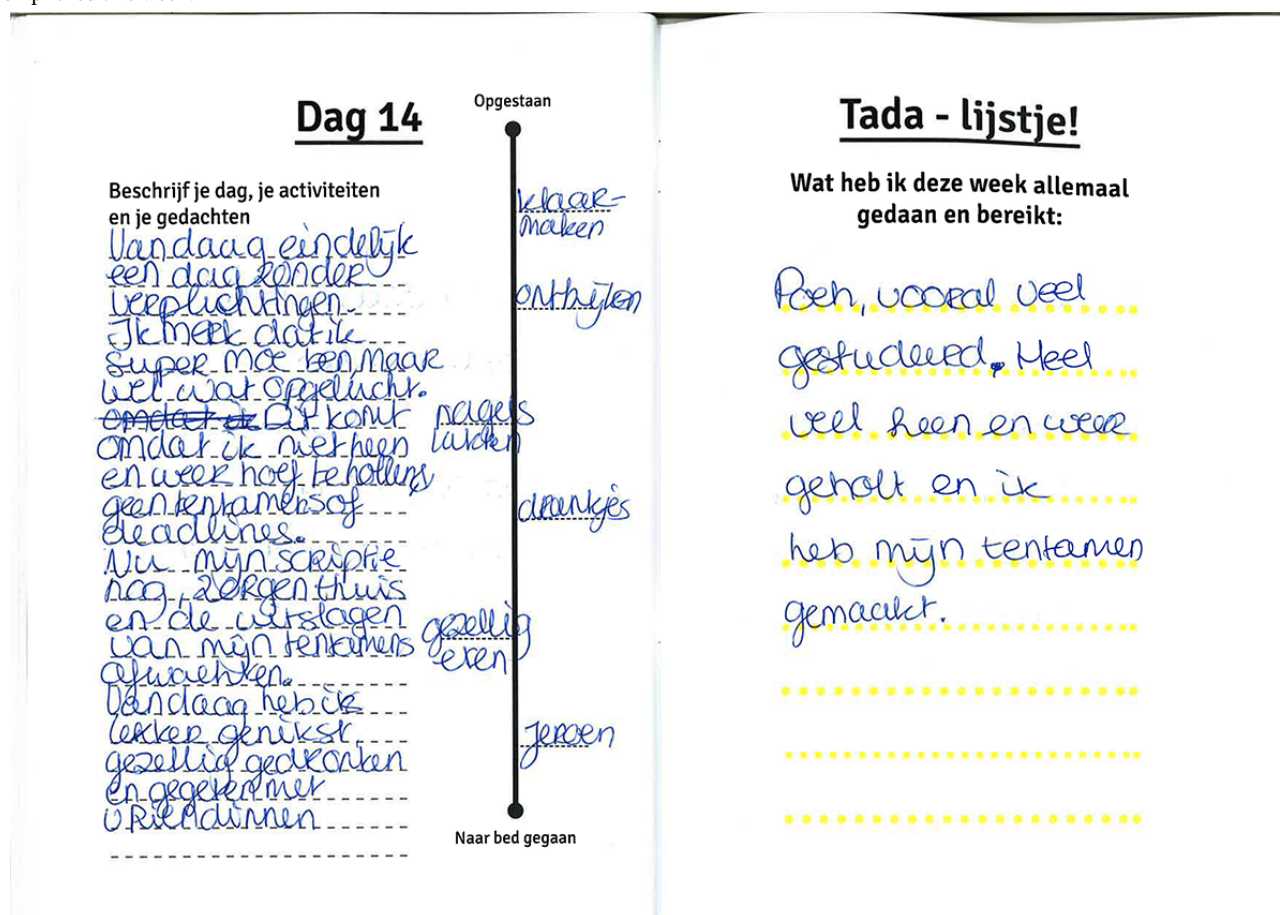 Dag 14
Beschrijf je dag, je activiteiten
en je gedachten
Vandaag eindelijk
een dag zonder
verplichtingen.
Ik merk dat ik
super moe ben maar
wel wat opgelucht.
omdat ik Dit komt
omdat ik niet heen
en weer hoef te hollen,
geen tentamens of
deadlines.
Nu mijn scriptie
nog, zorgen thuis
en de uitslagen
van mijn tentamens
afwachten.
Vandaag heb ik
lekker genikst,
gezellig gedronken
en gegeten met
vriendinnen
Opgestaan
klaar-
maken
ontbijten
nagels
lakken
drankjes
gezellig
eten
Jeroen
Naar bed gegaan
Tada - lijstje!
Wat heb ik deze week allemaal
gedaan en bereikt:
Poeh, vooral veel
gestudeerd. Heel
veel heen en weer
geholt en ik
heb mijn tentamen
gemaakt.